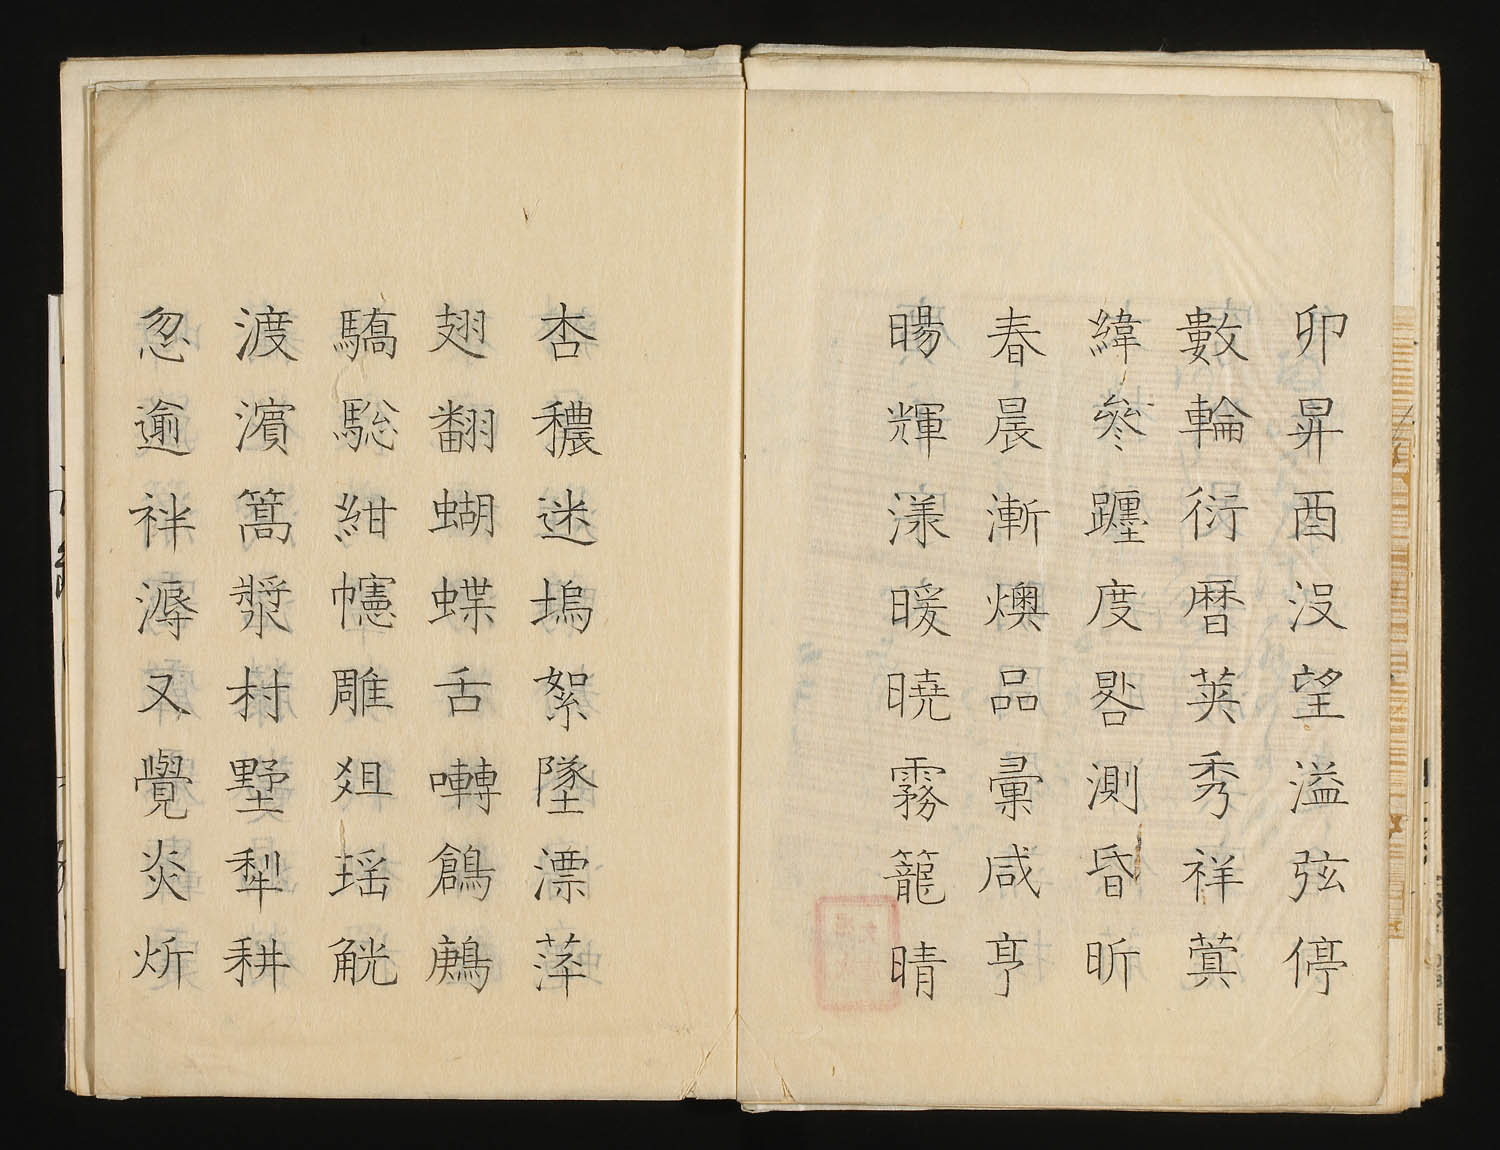 卯昇酉没望溢弦停
數輪衍暦莢秀祥蓂
緯參躔度晷測昏昕
春晨漸燠品彙咸亨
暘輝漾暖曉霧籠晴
杏穠迷塢絮墜漂萍
翅翻蝴蝶舌囀鶬鷓
驕驄紺幰雕俎瑶觥
渡濵篙槳村墅犁耕
忽逾袢溽又覺炎炘